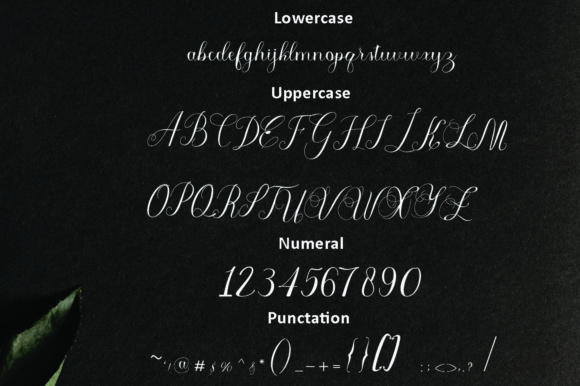 Lowercase
abcdefghijklmnopqrstuvwxyz
Uppercase
ABCDEFGHIJKLM
OPQRSTUVWXYZ
Numeral
1234567890
Punctation
~'!@#$%^&*()_-+={}[]:;<>,.?/